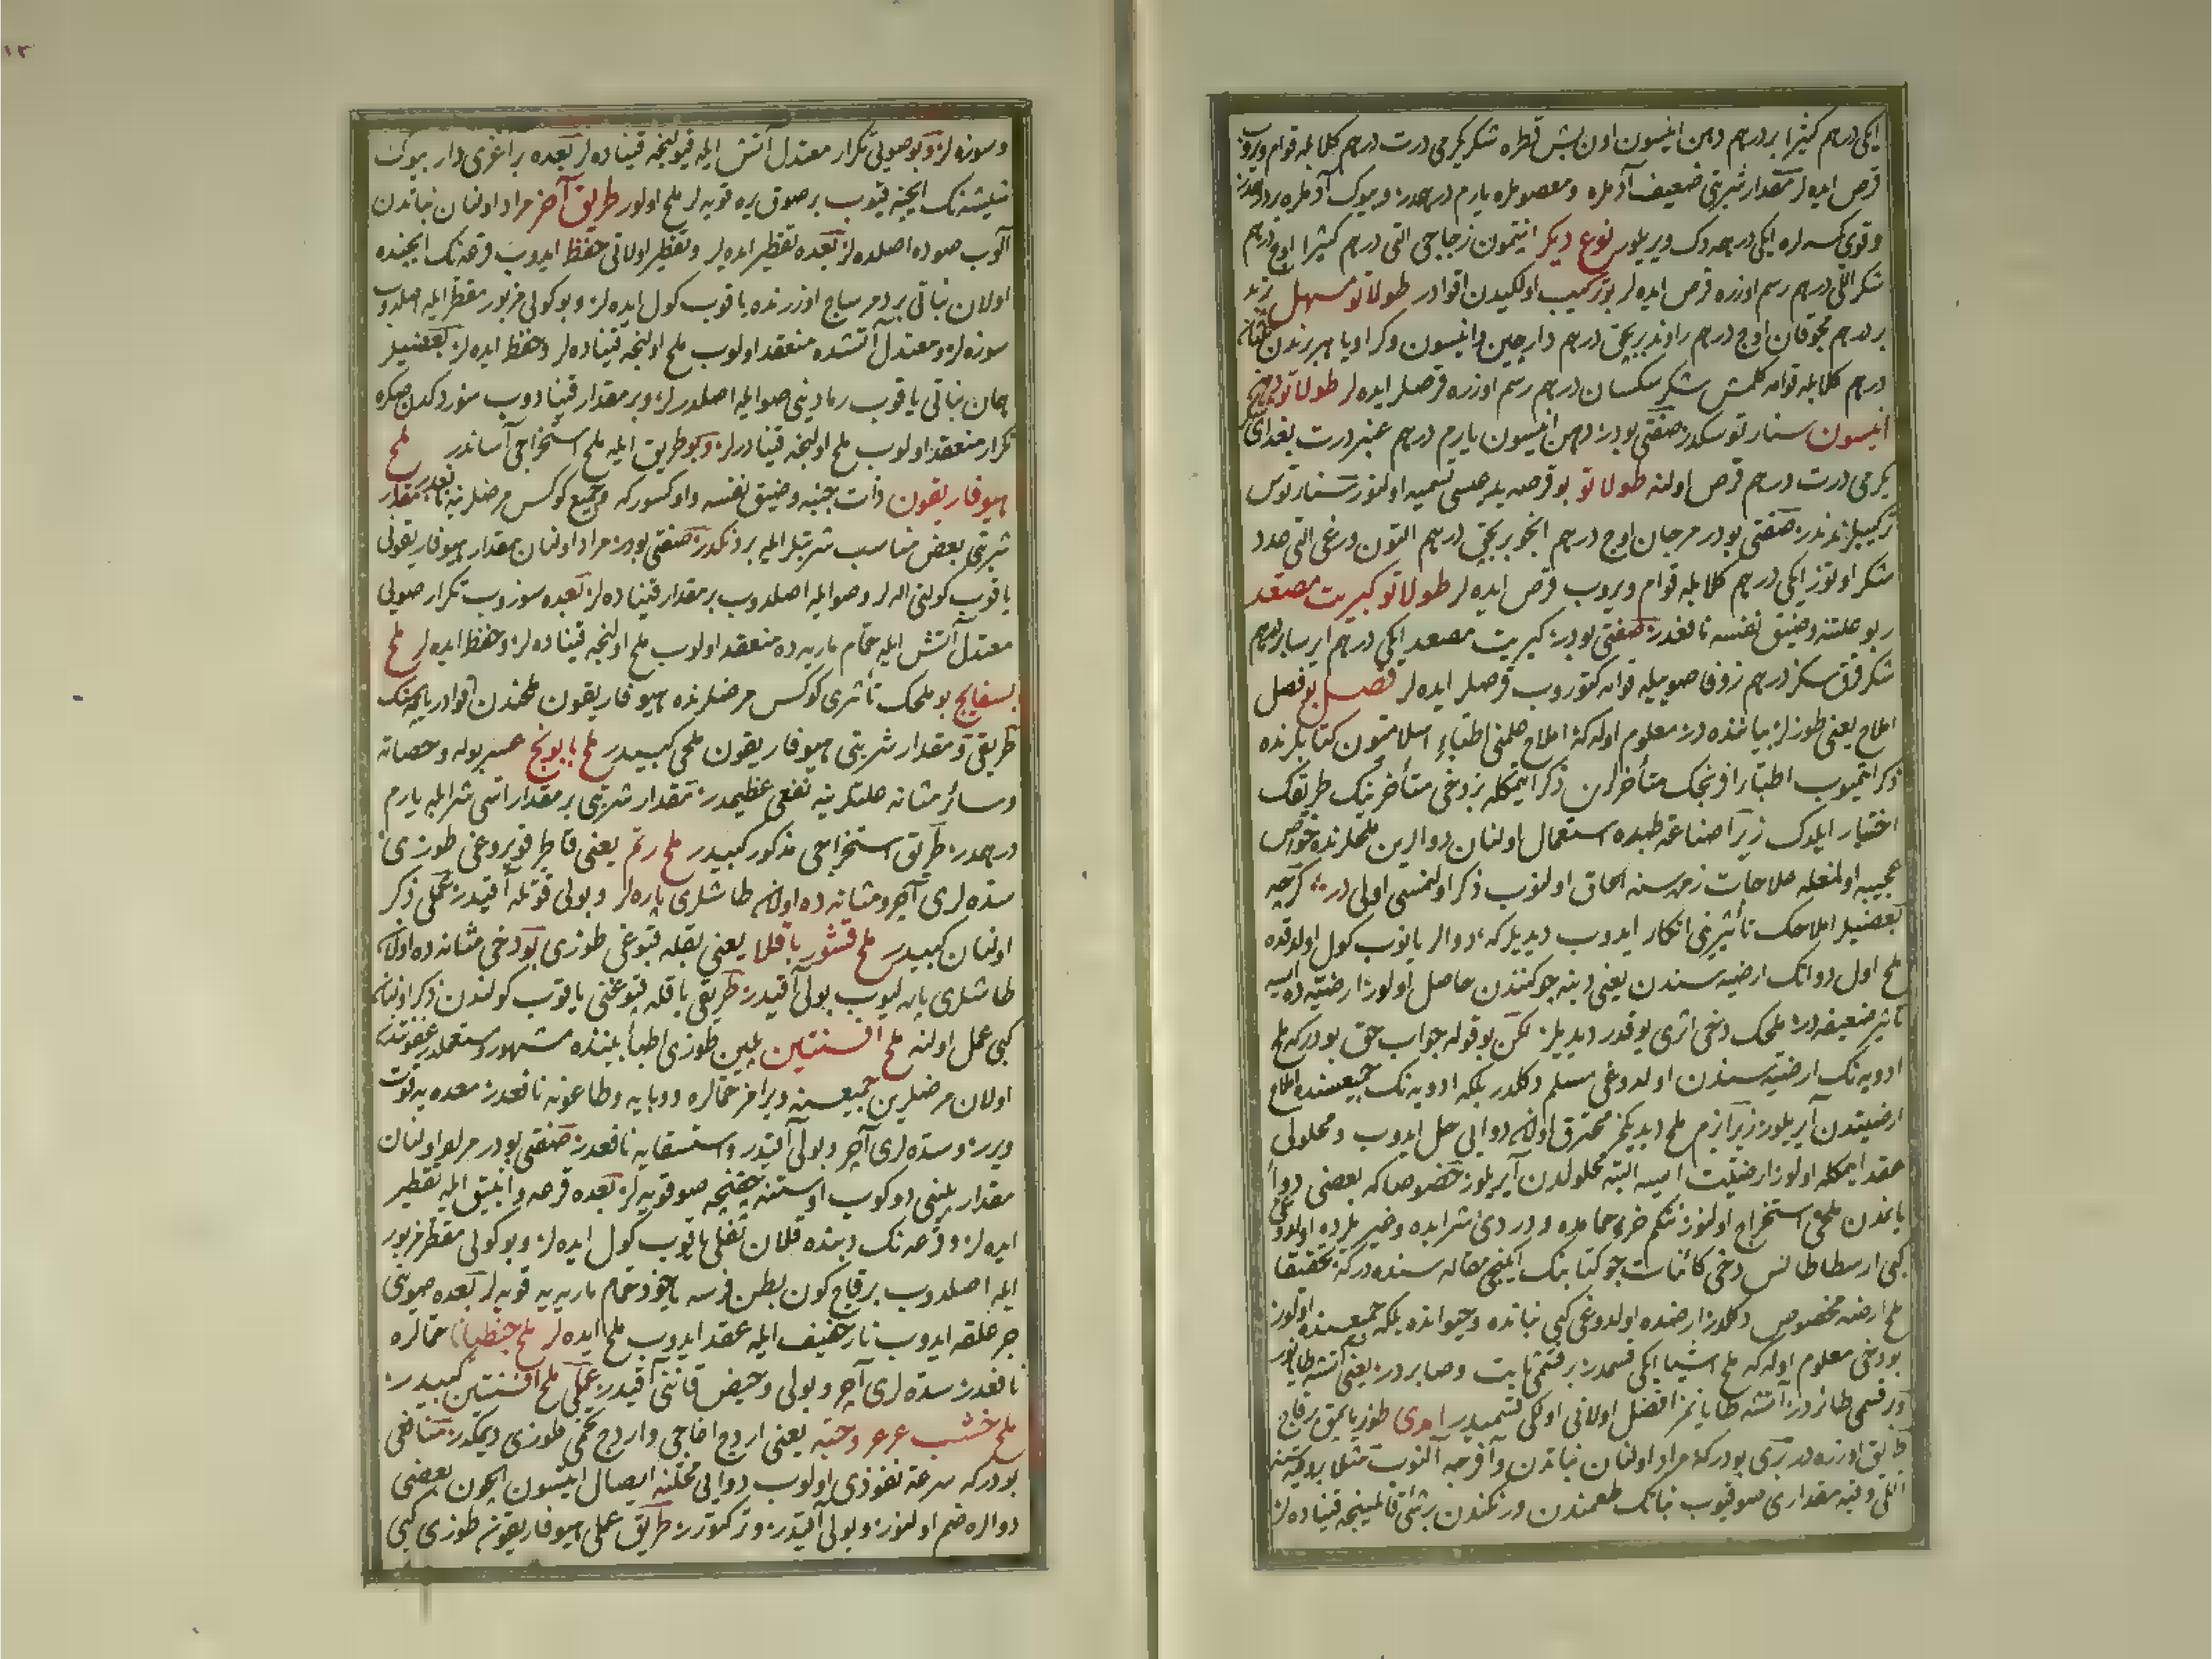 ایکی درهم کثیرا بر درهم دهن انیسون اون بش قطره شکر یکرمی درت درهم کلابله قوام ویروب
قرص ایده لر مقدار شربتی ضعیف آدملره و معصوملره یارم درهمدر و بیوک آدملره بر درهمدر
و قوی کمسه لره ایکی درهمه دک ویریلور نوع دیکر انتیمون زجاجی التی درهم کثیرا اوج درهم
شکر اللی درهم رسم اوزره قرص ایده لر بو ترکیب اولکیدن اقوادر طولاتو مسهل
بر درهم محموقان اوج درهم راوند بر بچق درهم دارچین و انیسون و کراویا هر برندن
درهم کلابله قوامه کلمش شکر سکسان درهم رسم اوزره قرصلر ایده لر طولاتو
انیسون سنارتوسکدر صنعتی بودر دهن انیسون یارم درهم عنبر درت بغدای
یکرمی درت درهم قرص اولنه طولاتو بو قرصه پدرصسی تسمیه اولنور سنارتوس
ترکیبلرندندر صنعتی بودر مرجان اوج درهم انجو بر بچق درهم التون ورغی التی عدد
شکر اوتوز ایکی درهم کلابله قوام ویروب قرص ایده لر طولاتو کبریت مصعد
ربو علتنه و ضیق نفسه نافعدر صنعتی بودر کبریت مصعد ایکی درهم ایرسا بر درهم
شکر قرق سکز درهم زوفا صوییله قوامه کتوروب قرصلر ایده لر فصل بو فصل
املاح یعنی طوزلر بیاننده در معلوم اوله که املاح علمنی اطباء اسلامیون کتابلرنده
ذکر اتمیوب اطباء افرنجک متأخرلرن ذکر ایتمکله بز دخی متأخرینک طریقک
اختیار ایلدک زیرا صناعة طبده استعمال اولنان دوالرین ملحلرنده خواص
عجیبه اولمغله علاجات زمره سنه الحاق اولنوب ذکر اولنمسی اولی در کرچه
بعضیلر املاحک تأثیرنی انکار ایدوب دیدیلر که دوالر یانوب کول اولدقده
ملح اول دوانک ارضیه سندن یعنی دبنه چوکندن حاصل اولور ارضیه ده ایسه
تأثیر ضعیفدر ملحک دخی اثری یوقدر دیدیلر لکن بو قوله جواب حق بودر که ملح
ادویه نک ارضیه سندن اولدوغی مسلم دکلدر بلکه ادویه نک جمیعسنده املاح
ارضیتدن آیریلور زیرا بزم ملح دیدیکمز محترق اولان دوایی حل ایدوب و محلولی
عقد ایمکله اولور ارضیت ایسه البته محلولدن آیریلور خصوصا که بعضی دوا
یانمدن ملحی استخراج اولنور نتکم خمر حامضده و دردی شرابده و غیریلرده اولدوغی
کبی ارسطاطالس دخی کائنات جو کتابنک ایکنجی مقاله سنده درکه تحقیقا
ملح ارضه مخصوص دکلدر ارضده اولدوغی کبی نباتده و حیوانده بلکه جمیعسنده اولور
بو دخی معلوم اوله که ملح اشیا ایکی قسمدر بر قسمی ثابت و صابردر یعنی آتشه طیانور
و بر قسمی طائردر آتشه طیانمز افضل اولانی اولکی قسمیدر امدی طوز یاپمق برقاج
طریق اوزره در بری بودر که مراد اولنان نباتدن وافرجه آلنوب مثلا
اللی وقیه مقداری صو قیوب نباتک طعمندن و رنکندن بر شی قالمینجه قیناده لر
و سوزه لر و بو صویی تکرار معتدل آتش ایله قیولنجه قیناده لر بعده بر اغزی دار بیوک
شیشه نک ایچنه قیوب بر صوق یره قویه لر ملح اولور طریق آخر مراد اولنان نباتدن
آلوب صوده اصلده لر بعده تقطیر ایده لر و تقطیر اولانی حفظ ایدوب قرعه نک ایچنده
اولان نباتی بر دمر ساج اوزرنده یاقوب کول ایده لر و بو کولی مزبور مقطر ایله اصلدوب
سوزه لر و معتدل آتشده منعقد اولوب ملح اولنجه قیناده لر و حفظ ایده لر بعضیلر
همان نباتی یاقوب رمادینی صو ایله اصلدرلر و بر مقدار قینادوب سوزدکدن صکره
تکرار منعقد اولوب ملح اولنجه قینادرلر و بو طریق ایله ملح استخراجی آساندر ملح
هیوفاریقون ذات جنبه و ضیق نفسه و اوکسورکه و جمیع کوکس مرضلرینه نافعدر مقدار
شربتی بعض مناسب شربتلر ایله بر دنکدر صنعتی بودر مراد اولنان مقدار هیوفاریقونی
یاقوب کولنی اله لر و صو ایله اصلدوب بر مقدار قیناده لر بعده سوزوب تکرار صویی
معتدل آتش ایله حمام ماریه ده منعقد اولوب ملح اولنجه قیناده لر و حفظ ایده لر ملح
بسفایج بو ملحک تأثیری کوکس مرضلرنده هیوفاریقون ملحندن اقوادر یاپمنک
طریقی و مقدار شربتی هیوفاریقون ملحی کبیدر ملح بابونج عسر بوله و حصاته
و سائر مثانه علتلرینه نفعی عظیمدر مقدار شربتی بر مقدار اسی شراب ایله یارم
درهمدر طریق استخراجی مذکور کبیدر ملح رتم یعنی قاطر قویروغی طوزی
سده لری آچر و مثانه ده اولان طاشلری پاره لر و بولی قوتله آقیدر عملی ذکر
اولنان کبیدر ملح قشور باقلا یعنی بقله قبوغی طوزی بو دخی مثانه ده اولان
طاشلری پاره لیوب بولی آقیدر طریقی باقله قبوغنی یاقوب کولندن ذکر اولنان
کبی عمل اولنه ملح افسنتین پلین طوزی اطبا بیننده مشهور و مستعملدر عفونتدن
اولان مرضلرین جمیعسنه و یرامز حمالره و وبایه و طاعونه نافعدر معده یه قوت
ویرر و سده لری آچر و بولی آقیدر و استسقایه نافعدر صنعتی بودر مراد اولنان
مقدار پلینی دوکوب اوستنه چقنجه صو قویه لر بعده قرعه و انبیق ایله تقطیر
ایده لر و قرعه نک دبنده قلان ثفلی یاقوب کول ایده لر و بو کولی مقطر مزبور
ایله اصلدوب برقاج کون بطن فرسه یاخود حمام ماریه یه قویه لر بعده صوینی
جر علقه ایدوب نار خفیف ایله عقد ایدوب ملح ایده لر ملح جنطیانا حمالره
نافعدر سده لری آچر و بولی و حیض قاننی آقیدر عملی ملح افسنتین کبیدر
ملح خشب عرعر و حبه یعنی اردج اغاجی و اردج تخمی طوزی دیمکدر منافعی
بودر که سرعة نفوذی اولوب دوایی محلنه ایصال ایتسون ایچون بعضی
دوالره ضم اولنور و بولی آقیدر و ترکتورر طریق عملی هیوفاریقون طوزی کبی